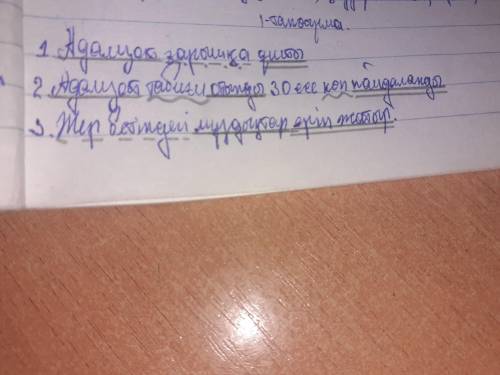 1-тапсырма.
1. Адамзат ғарышқа ұшты
2. Адамзат табиғи отынды 30 есе көп пайдаланды
3. Жер бетіндегі мұздықтар еріп жатыр.